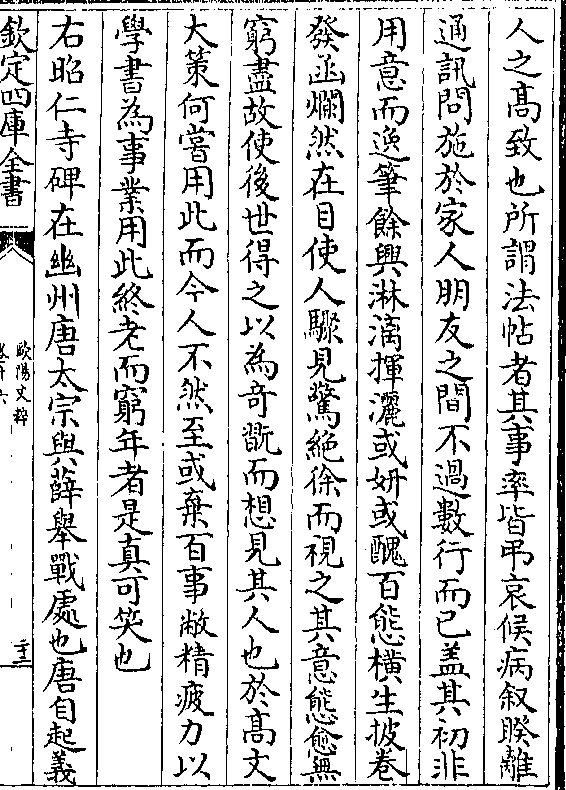 人之髙致也所謂法帖者其事率皆弔哀候病叙睽離
通訊問施於家人朋友之間不過數行而已盖其初非
用意而逸筆餘興淋漓揮灑或妍或醜百態横生披卷
發函爛然在目使人驟見驚絶徐而視之其意態愈無
窮盡故使後世得之以為奇翫而想見其人也於髙文
大策何嘗用此而今人不然至或棄百事敝精疲力以
學書為事業用此終老而窮年者是真可笑也
右昭仁寺碑在豳州唐太宗與薛舉戰處也唐自起義
欽定四庫全書
歐陽文粹
卷十六
二十三